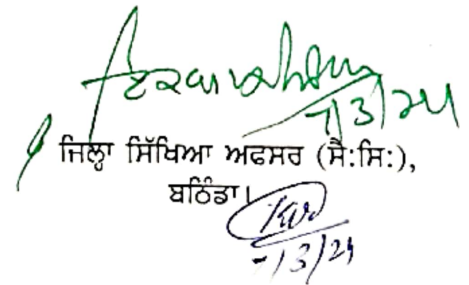 7/3/24
ਜਿਲ੍ਹਾ ਸਿੱਖਿਆ ਅਫਸਰ (ਸੈ:ਸਿ:),
ਬਠਿੰਡਾ।
7/3/24